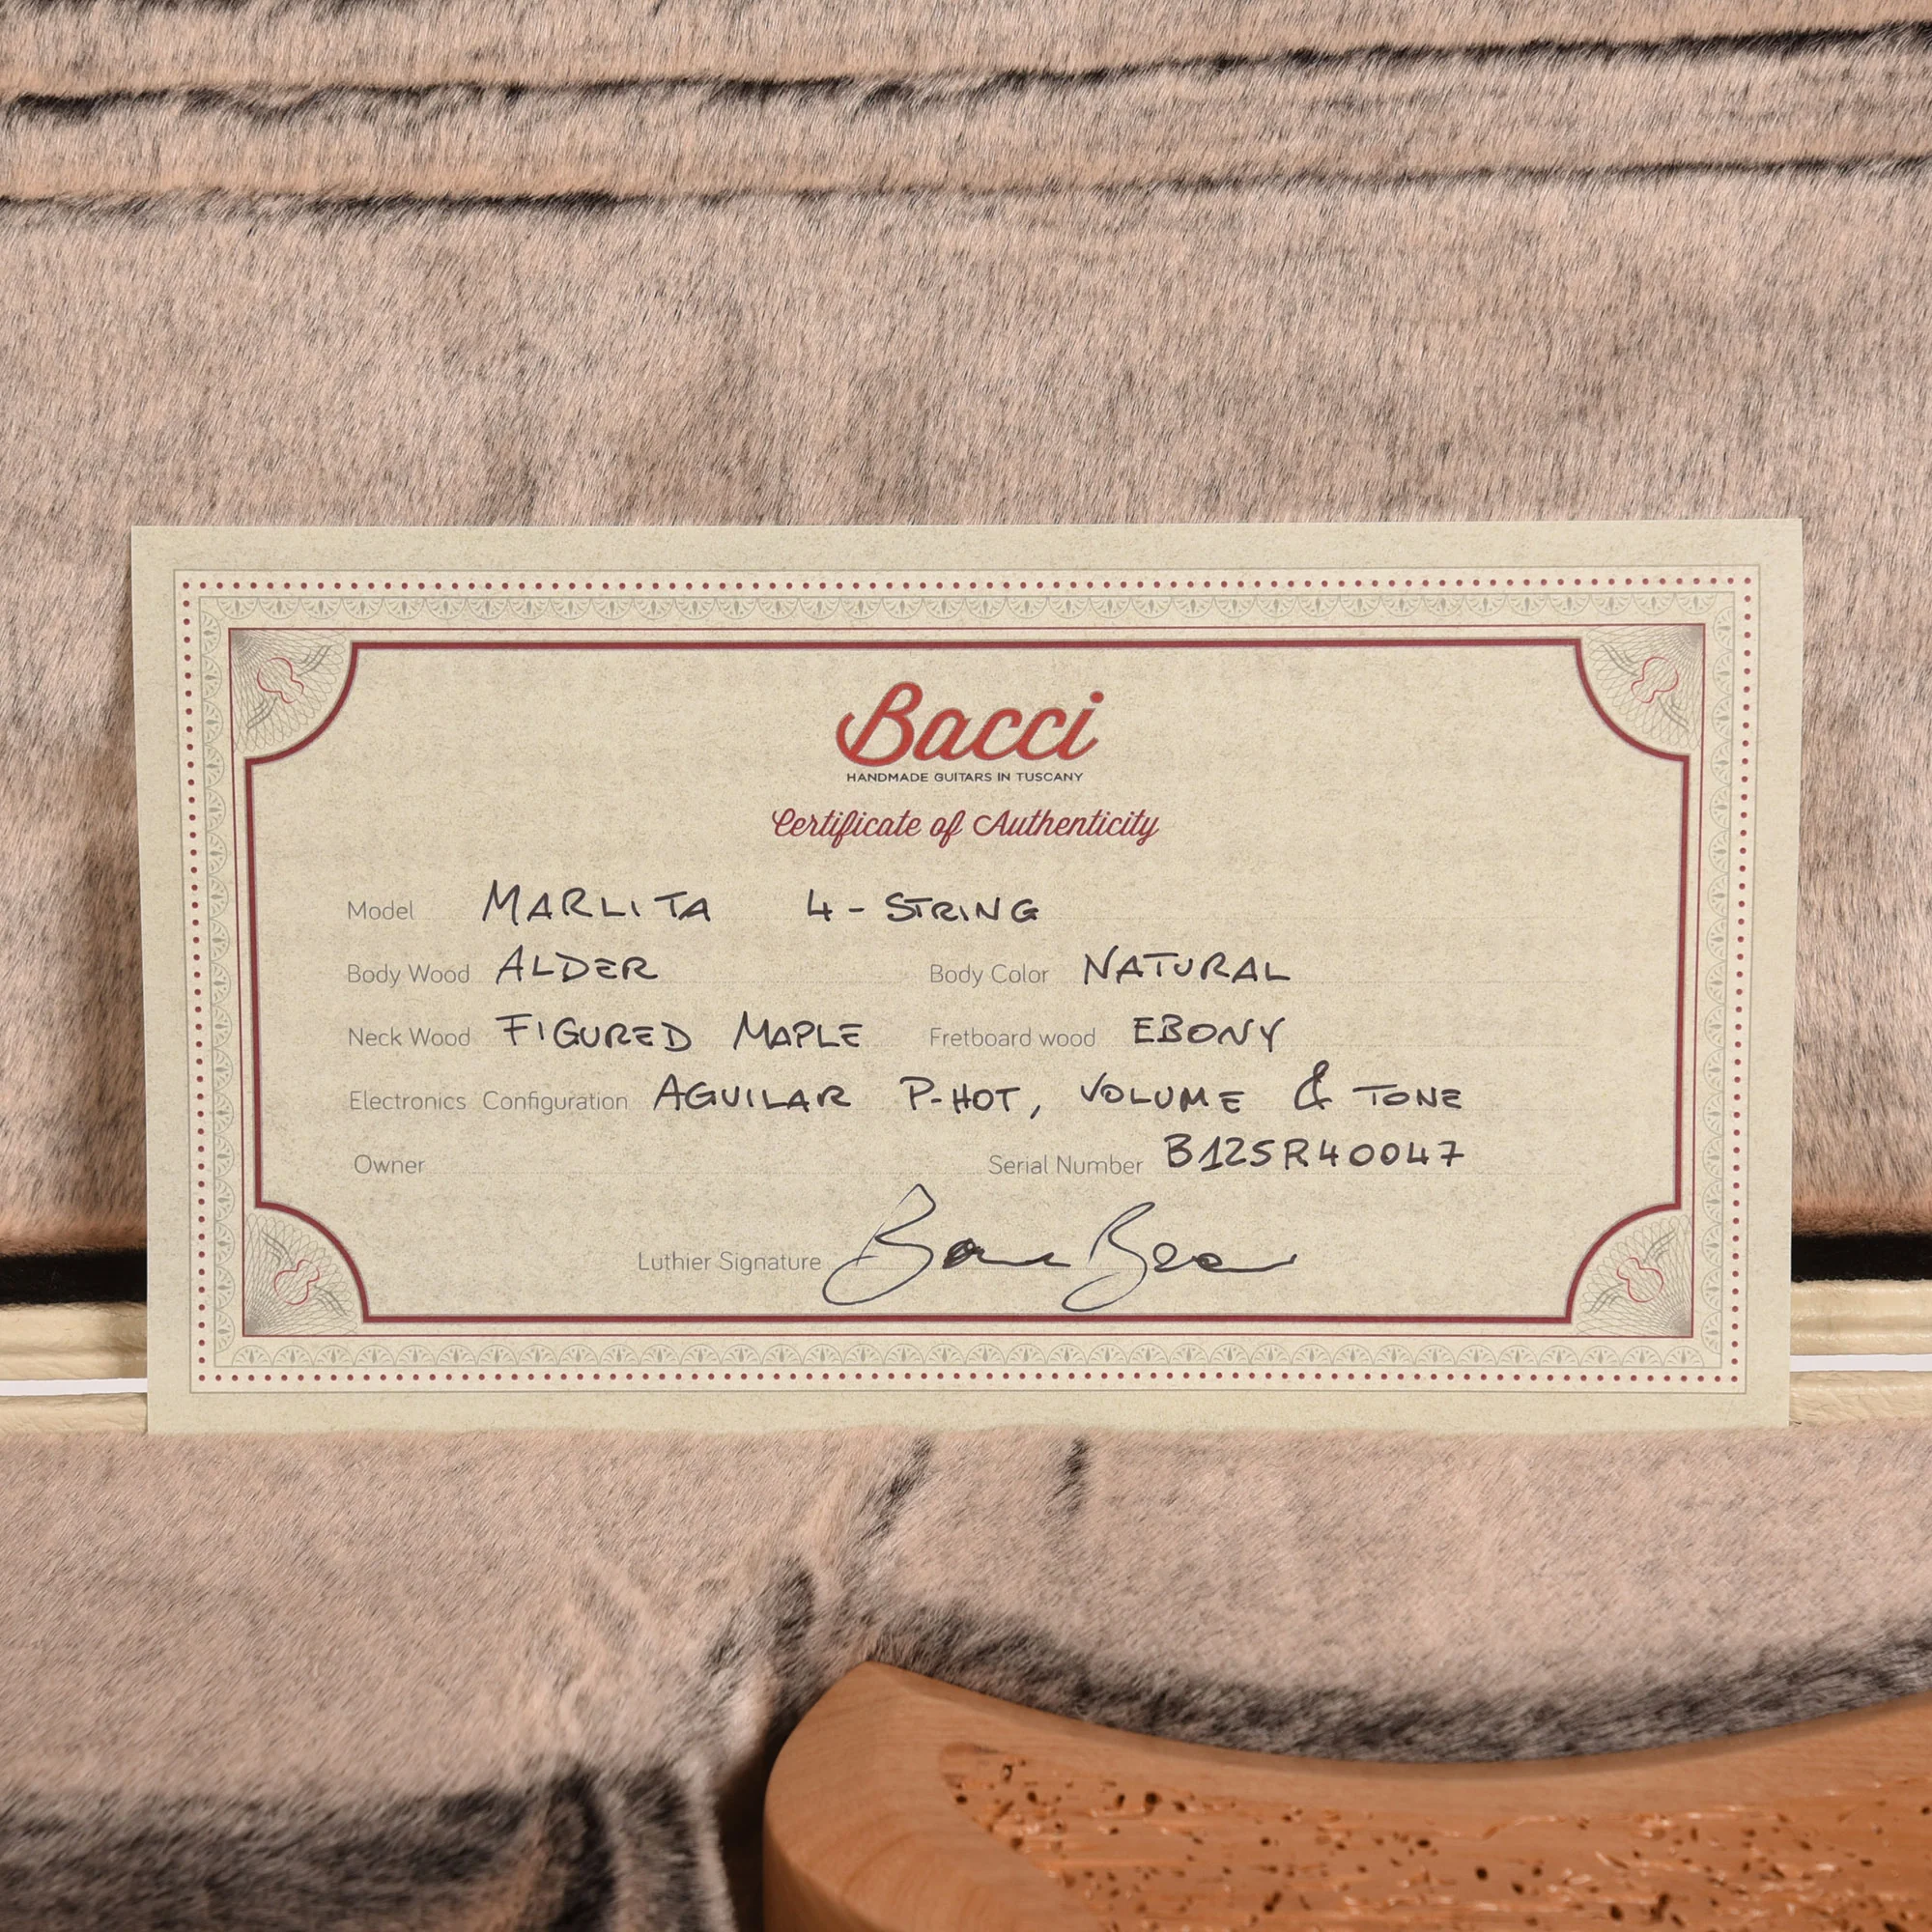 Bacci
HANDMADE GUITARS IN TUSCANY
Certificate of Authenticity
Model MARLITA 4-STRING
Body Wood ALDER Body Color NATURAL
Neck Wood FIGURED MAPLE Fretboard wood EBONY
Electronics Configuration AGUILAR P-HOT, VOLUME & TONE
Owner Serial Number B125R40047
Luthier Signature